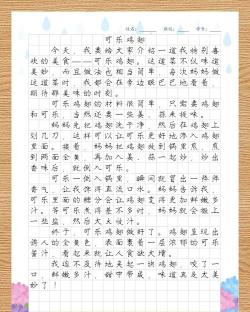 姓名: 班级: 学号:
可乐鸡翅
今天，我要给大家介绍一道我特别喜
欢的美食——可乐鸡翅。这道菜不仅味道
美妙，而且做法也相当简单。每次妈妈做
这道菜时，我都会在旁边眼巴巴地看着，
期待那美味的时刻。
可乐鸡翅的材料很简单，只需要鸡翅
和可乐，当然还要一些姜、蒜来提味。
妈妈先把鸡翅洗干净，然后在鸡翅上
划几刀，这样可以让可乐更好地渗入鸡翅
里面。接着，妈妈把鸡翅放到锅里煎，煎
到两面金黄，再加入姜、蒜一起炒，炒出
香味后，就倒入可乐。
可乐一倒入锅里，瞬间就冒出一阵阵
香气，让我馋得直流口水。妈妈告诉我，
可乐里面的糖分会让鸡翅变得更加鲜嫩多
汁。等可乐煮得差不多时，妈妈就会撒上
一些盐，然后大火收汁。
终于，可乐鸡翅做好了。鸡翅呈现出
诱人的金黄色，表面裹着一层浓郁的可乐
酱汁，看起来就让人食欲大增。
我迫不及待地夹起一块鸡翅，咬了一
口，鲜嫩多汁，甜中带咸，味道真是太美
妙了！